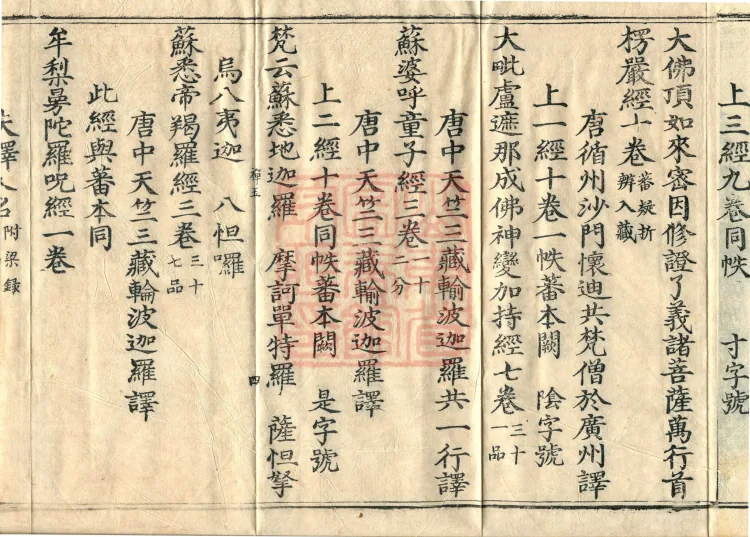 上三經九卷同帙 寸字號
大佛頂如來密因修證了義諸菩薩萬行首
楞嚴經十卷蕃疑折辨入藏
唐循州沙門懷迪共梵僧於廣州譯
上一經十卷一帙蕃本闕 陰字號
大毗盧遮那成佛神變加持經七卷三十一品
唐中天竺三藏輸波迦羅共一行譯
蘇婆呼童子經三卷一十二分
唐中天竺三藏輸波迦羅譯
上二經十卷同帙蕃本闕 是字號
梵云蘇悉地迦羅 摩訶單特羅 薩怛拏
烏八夷迦 八怛囉
蘇悉帝羯羅經三卷三十七品
唐中天竺三藏輪波迦羅譯
此經與蕃本同
牟梨曼陀羅呪經一卷
失譯人名附梁録
四